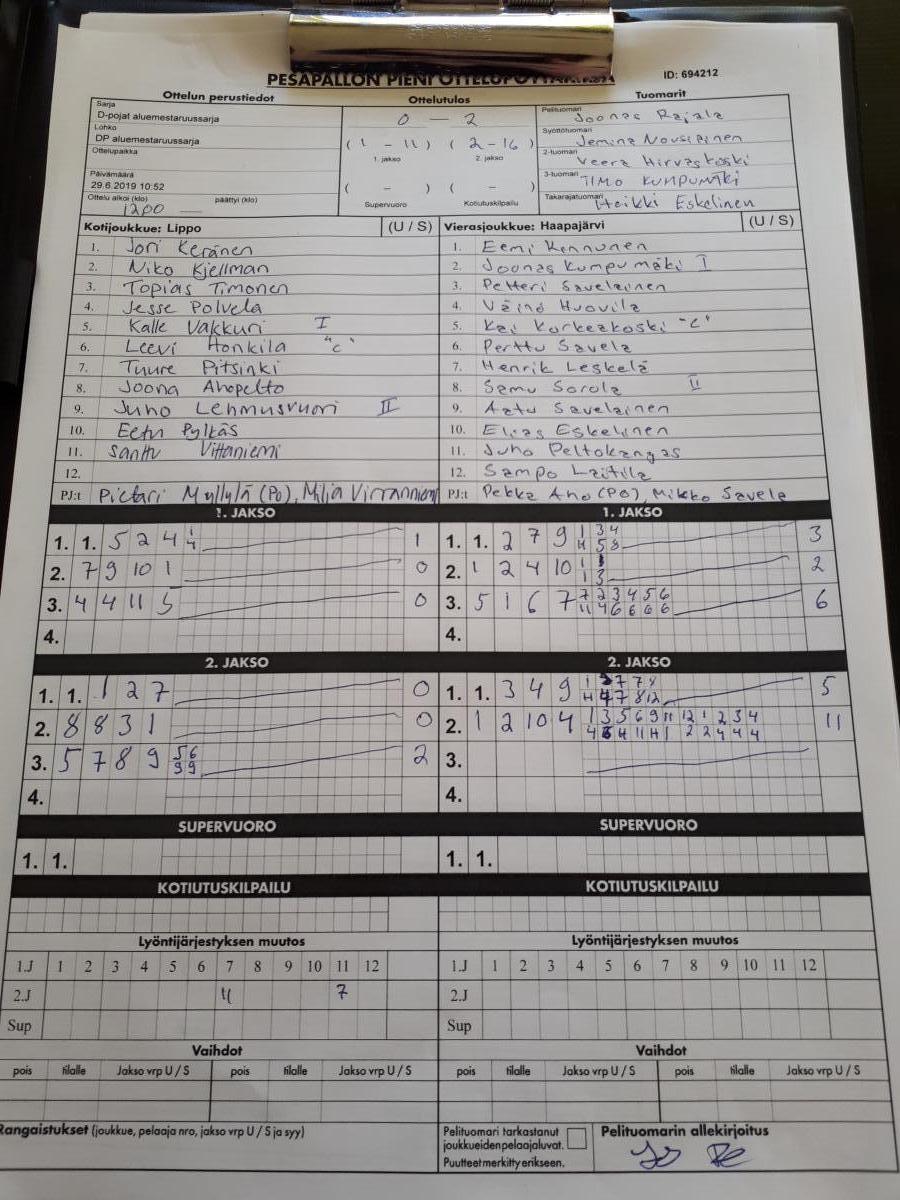 PESÄPALLON PIENI OTTELUPÖYTÄKIRJA
ID: 694212
Ottelun perustiedot
Sarja
D-pojat aluemestaruussarja
Lohko
DP aluemestaruussarja
Ottelupaikka
Päivämäärä
29.6.2019 10:52
Ottelu alkoi (klo) päättyi (klo)
1200 —
Ottelutulos
0 — 2
( 1 - 11 ) ( 2 - 16 )
1. jakso 2. jakso
( - ) ( - )
Supervuoro Kotiutuskilpailu
Tuomarit
Pelituomari Joonas Rajala
Syöttötuomari Jemina Nousiainen
2-tuomari Veera Hirvaskoski
3-tuomari TIMO KUMPUMÄKI
Takarajatuomari Heikki Eskelinen
Kotijoukkue: Lippo (U / S)
1. Jori Keränen
2. Niko Kjellman
3. Topias Timonen
4. Jesse Polvela
5. Kalle Vakkuri I
6. Leevi Honkila "c"
7. Tuure Pitsinki
8. Joona Ahopelto
9. Juho Lehmusvuori II
10. Eetu Pylkäs
11. Santtu Vittaniemi
12.
PJ:t Pietari Myllylä (Po), Milja Virranniemi
Vierasjoukkue: Haapajärvi (U / S)
1. Eemi Kinnunen
2. Joonas Kumpumäki I
3. Petteri Savelainen
4. Väinö Huovila
5. Kai Korkeakoski "C"
6. Perttu Savela
7. Henrik Leskelä
8. Samu Sorola II
9. Aatu Savelainen
10. Elias Eskelinen
11. Juho Peltokangas
12. Sampo Laitila
PJ:t Pekka Aho (PO), Mikko Savela
1. JAKSO
1. 1. 5 2 4 1 1
4
2. 7 9 10 1 0
3. 4 4 11 5 0
4.
1. JAKSO
1. 1. 2 7 9 1 3 4 3
4 5 8
2. 1 2 4 10 1 1 2
1 3
3. 5 1 6 7 7 2 3 4 5 6 6
11 4 6 6 6 6
4.
2. JAKSO
1. 1. 1 2 7 0
2. 8 8 3 1 0
3. 5 7 8 9 5 6 2
9 9
4.
2. JAKSO
1. 1. 3 4 9 1 3 7 7 8 5
4 4 7 8 12
2. 1 2 10 4 1 3 5 6 9 11 12 1 2 3 4 11
4 4 11 11 1 2 2 4 4 4
3.
4.
SUPERVUORO
1. 1.
SUPERVUORO
1. 1.
KOTIUTUSKILPAILU
KOTIUTUSKILPAILU
Lyöntijärjestyksen muutos
1.J 1 2 3 4 5 6 7 8 9 10 11 12
2.J 11 7
Sup
Lyöntijärjestyksen muutos
1.J 1 2 3 4 5 6 7 8 9 10 11 12
2.J
Sup
Vaihdot
pois tilalle Jakso vrp U / S pois tilalle Jakso vrp U / S
Vaihdot
pois tilalle Jakso vrp U / S pois tilalle Jakso vrp U / S
Rangaistukset (joukkue, pelaaja nro, jakso vrp U / S ja syy)
Pelituomari tarkastanut
joukkueiden pelaajaluvat.
Puutteet merkitty erikseen.
Pelituomarin allekirjoitus